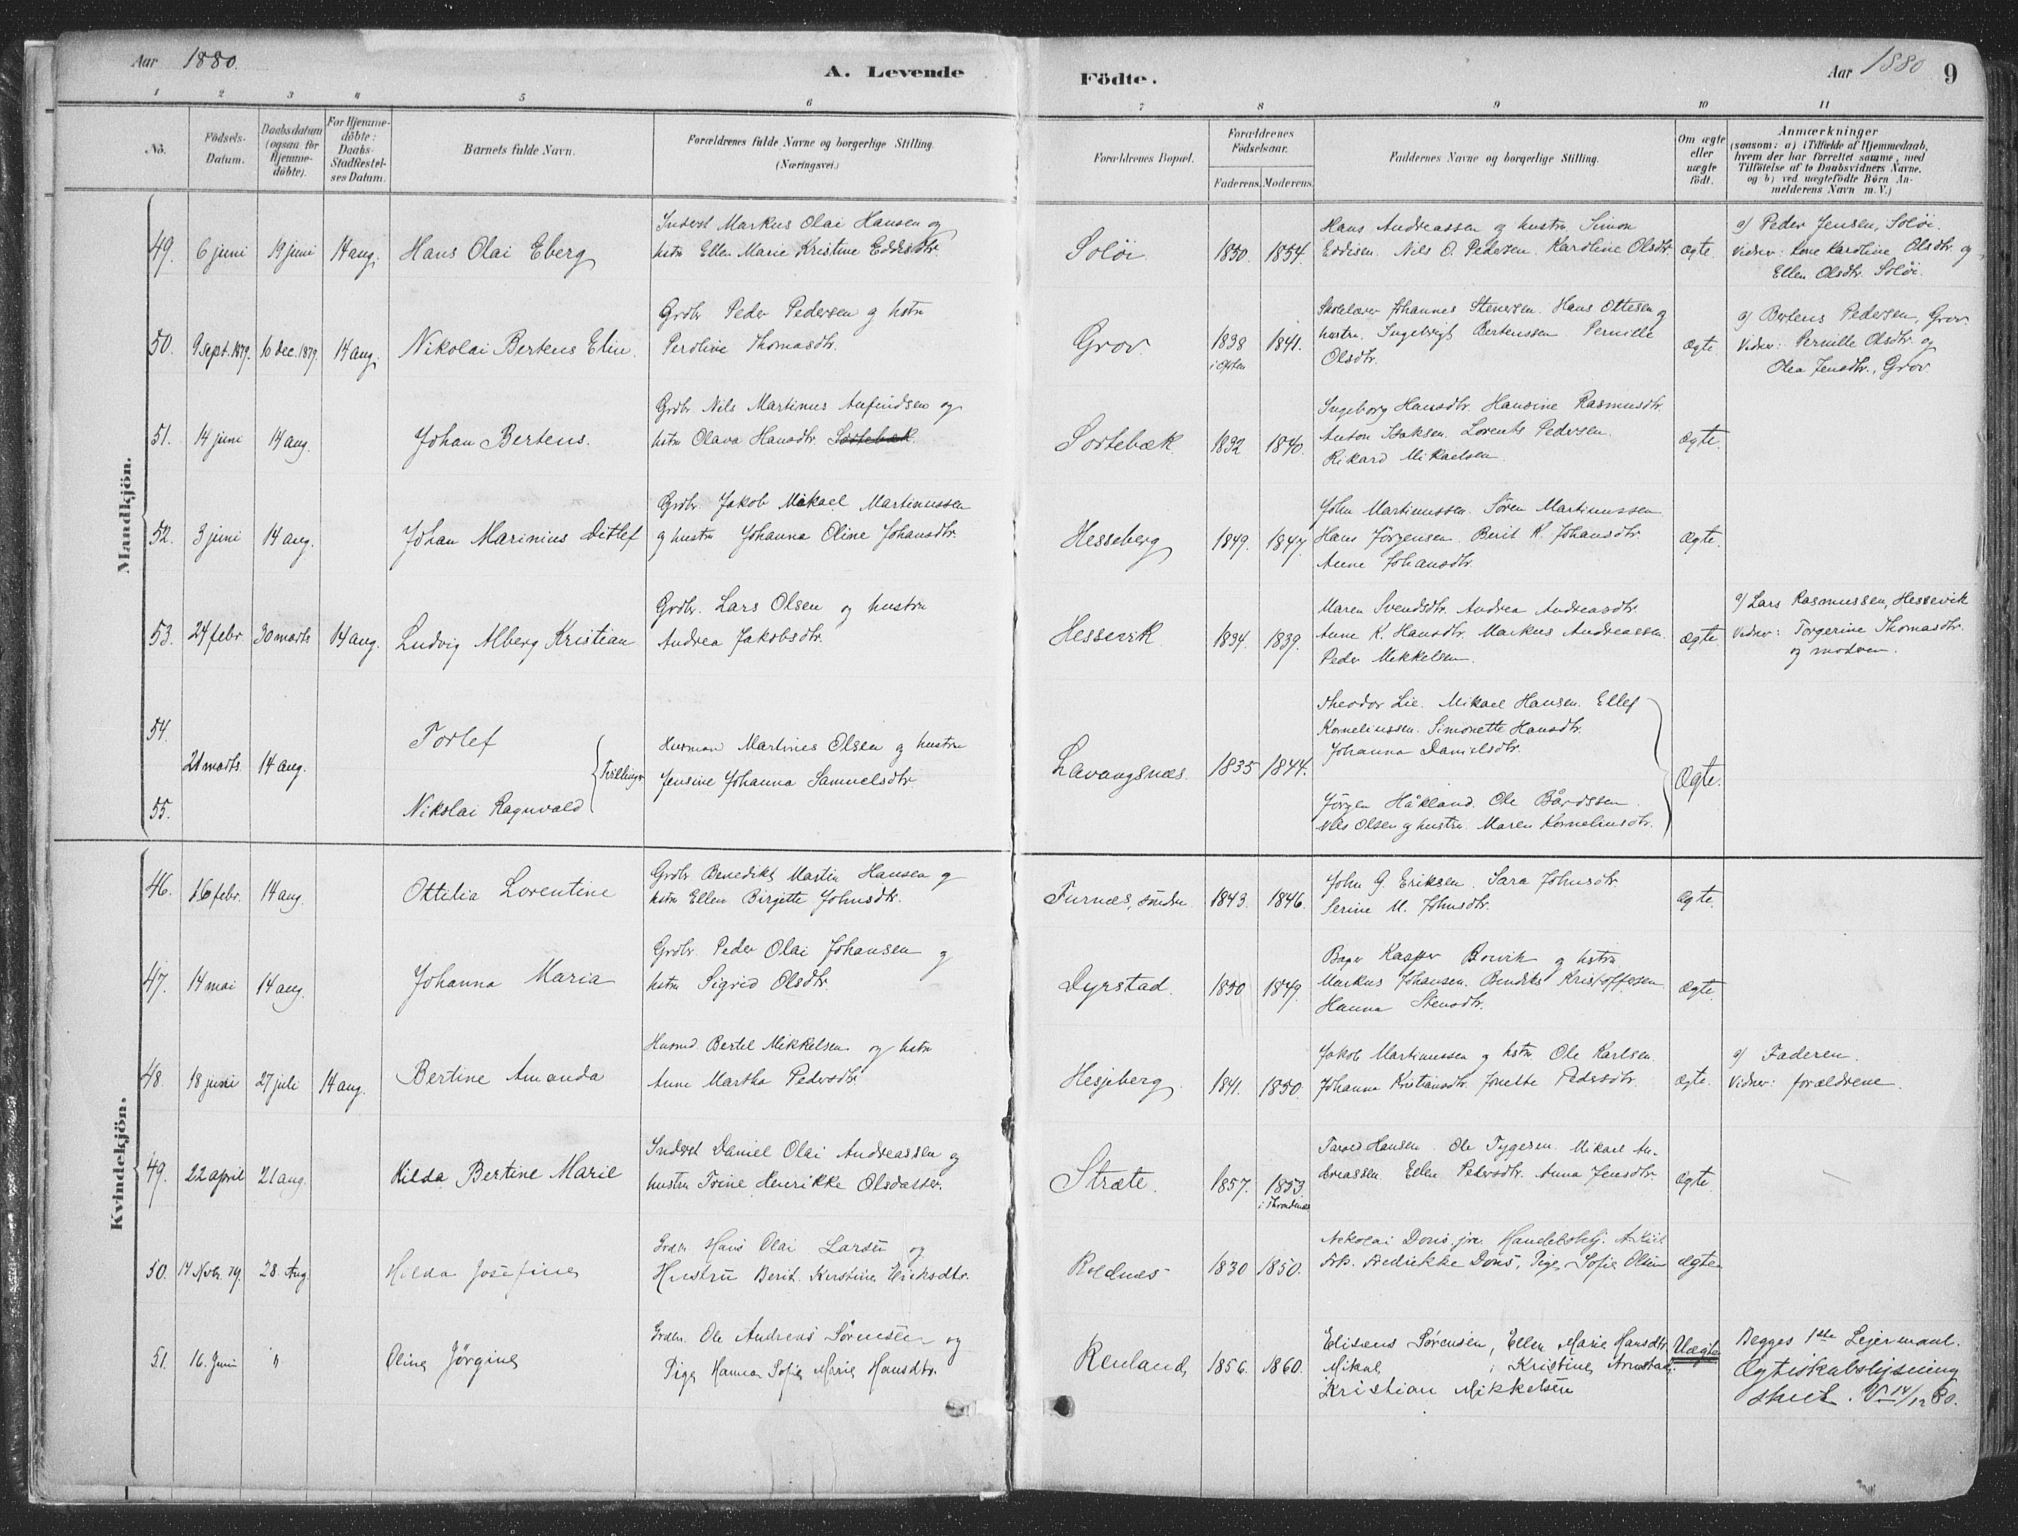 Aar 1880.
A. Levende Födte.
Aar 1880 9
1 2 3 4 5 6 7 8 9 10 11
Nö.
Födsels-Datum.
Daabsdatum (ogsaa for Hjemme-döbte).
For Hjemme-döbte: Daabs-Stadfæstel-ses Datum.
Barnets fulde Navn.
Forældrenes fulde Navne og borgerlige Stilling. (Næringsvei.)
Forældrenes Bopæl.
Forældrenes Födselsaar.
Faderens. Moderens.
Faddernes Navne og borgerlige Stilling.
Om ægte eller uægte födt.
Anmærkninger
(saasom: a) i Tilfælde af Hjemmedaab,
hvem der har forrettet samme, med
Tilföielse af to Daabsvidners Navne.
og b) ved uægtefödte Börn An-
melderens Navn m. V.)
Mandkjön.
49. 6 juni 19 juni 14 aug. Hans Olai Eberg
Inderst Markus Olai Hansen og
hstr Ellen Marie Kristine Eddisdtr.
Soløi 1850. 1854.
Hans Andreassen og hustru Simon
Eddisen Nils O. Pedersen Karoline Olsdtr. Ægte.
a) Peder Jensen, Soløi.
Vidner: Kone Karoline Olsdtr og
Ellen Olsdtr Soløi.
50. 9 Sept. 1879. 16 dec. 1879. 14 aug. Nikolai Bertens Elin
Grdbr Peder Pedersen g hstru
Peroline Thomasdtr.
Grov 1838 1841.
Skolelærer Johannes Stensen. Hans Ottesen g
hustru Ingebrigt Bertenssen Pernille
Olsdtr. Ægte
a) Bertens Pedersen, Grov.
Vidner: Pernille Olsdtr og
Olea Jensdtr., Grov
51. 14 juni 14 aug. Johan Bertens.
Grdbr Nils Martinus Anfindsen og
hstru Olava Hansdtr. Sortebæk.
Sortebæk 1832 1840.
Ingeborg Hansdtr. Hansine Rasmusdtr.
Anton Isaksen. Lorents Pedersen.
Rikard Mikaelsen. Ægte.
52. 3 juni 14 aug. Johan Marinius Ditlef
Grdbr. Jakob Mikael Martinussen
g hustru Johanna Oline Johansdtr.
Hesseberg 1849. 1847.
John Martinussen. Søren Martinussen
Hans Jörgensen. Berit K. Johansdtr.
Anne Johansdtr. Ægte.
53. 24 febr. 30 marts 14 aug. Ludvig Alberg Kristian
Grdbr. Lars Olsen og hustru
Andrea Jakobsdtr.
Hessevik 1834. 1839.
Maren Svendsdtr. Andrea Andreasdtr.
Anne K. Hansdtr. Markus Andreassen.
Peder Mekkelsen. Ægte.
a) Lars Rasmussen, Hessevik
Vidner: Torgerine Thomasdtr.
og modren.
54. Torlef
21 marts. 14 aug. Tvillinger
55. Nikolai Ragnvald
Husmand Martines Olsen g hustru
Jensine Johanna Samuelsdtr.
Lavangsnæs. 1835 1844.
Theodor Lie. Mikael Hansen. Ellef
Korneliussen. Simonette Hansdtr.
Johanna Danielsdtr.
Jörgen Håkland. Ole Bårdssen.
Nils Olsen g hustru. Maren Korneliusdtr. Ægte.
Kvindekjön.
46. 16 febr. 14 aug. Ottilia Lorentine
Grdbr Benedikt Martin Hansen g
hstru Ellen Birgitte Johnsdtr.
Furnæs, søndre. 1843. 1846.
John G. Eriksen. Sara Johnsdtr.
Serine M. Johnsdtr. Ægte.
47. 14 mai 14 aug. Johanna Maria
Grdbr. Peder Olai Johansen g
hstru Sigrid Olsdtr.
Dyrstad. 1850 1849.
Bager Kasper Borvik g hstru
Markus Johansen. Bendiks Kristoffersen
Hanna Stensdtr. Ægte.
48. 18 juni 27 juli 14 aug. Bertine Amanda
Husmd Bertel Mikkelsen og hstru
Anne Martha Pedersdtr
Hesjeberg. 1841. 1850.
Jakob Martinussen g hstr Ole Karlsen.
Johanna Kristiansdtr. Jonette Pedersdtr. Ægte.
a) Faderen.
Vidner: forældrene.
49. 22 april 21 aug. Hilda Bertine Marie
Inderst Daniel Olai Andreassen og
hustru Trine Henrikke Olsdatter.
Stræte. 1857. 1853.
i Throndenæs
Tarald Hansen. Ole Tygesen. Mikael An-
dreassen Ellen Pedersdtr. Anna Jensdtr. Ægte
50. 14 Novbr. 79. 28 Aug Hilda Josefine
Grdm. Hans Olai Larsen og
Hustru Berit Kerstine Eriksdtr.
Roldnæs 1830 1850.
Nikolai Dons jr. Handelsbetj.
Frk. Fredrikke Dons, Pige Sofie Olsen Ægte
51. 16. Juni " Oline Jørgine
Grdm. Ole Andreas Sørensen og
Pige Hanna Sofie Marie Hansdtr.
Renland, 1856. 1860.
Elisens Sørensen, Ellen Marie Hansdtr.
Mikal Kristine Arnstad,
Kristian Mikkelsen Uægte
Begges 1ste Lejermaal.
Ægteskabslysning
skeet. 14/12 80.